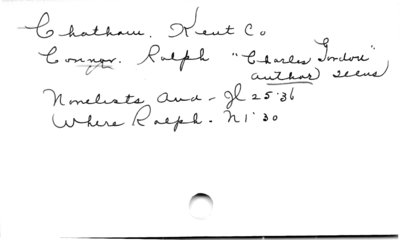 Chatham. Kent Co
Connor. Ralph "Charles Gordon"
author) illus
Novelists and - Jl 25·36
Where Ralph. N 1·30